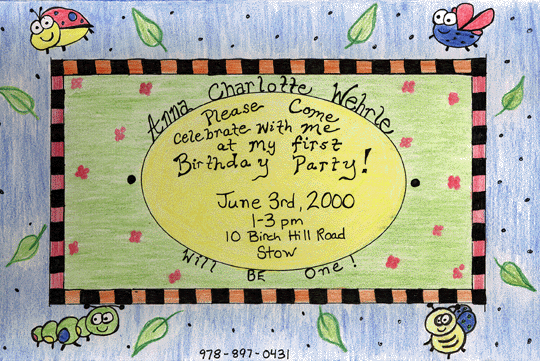 Anna Charlotte Wehrle
Please Come
celebrate with me
at my first
Birthday Party!
June 3rd, 2000
1-3 pm
10 Birch Hill Road
Stow
Will BE One!
978-897-0431